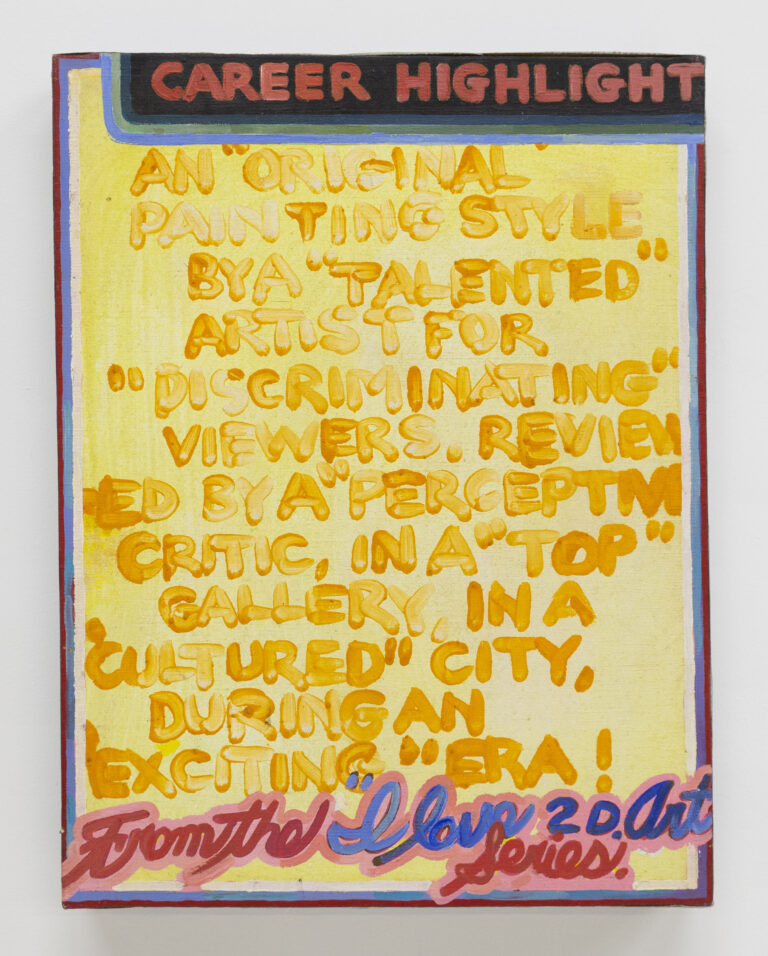 CAREER HIGHLIGHT
AN "ORIGINAL"
PAINTING STYLE
BY A "TALENTED"
ARTIST FOR
"DISCRIMINATING"
VIEWERS. REVIEW
-ED BY A "PERCEPTIV
CRITIC, IN A "TOP"
GALLERY, IN A
"CULTURED" CITY,
DURING AN
"EXCITING" ERA!
From the "I love 2D. Art
Series.